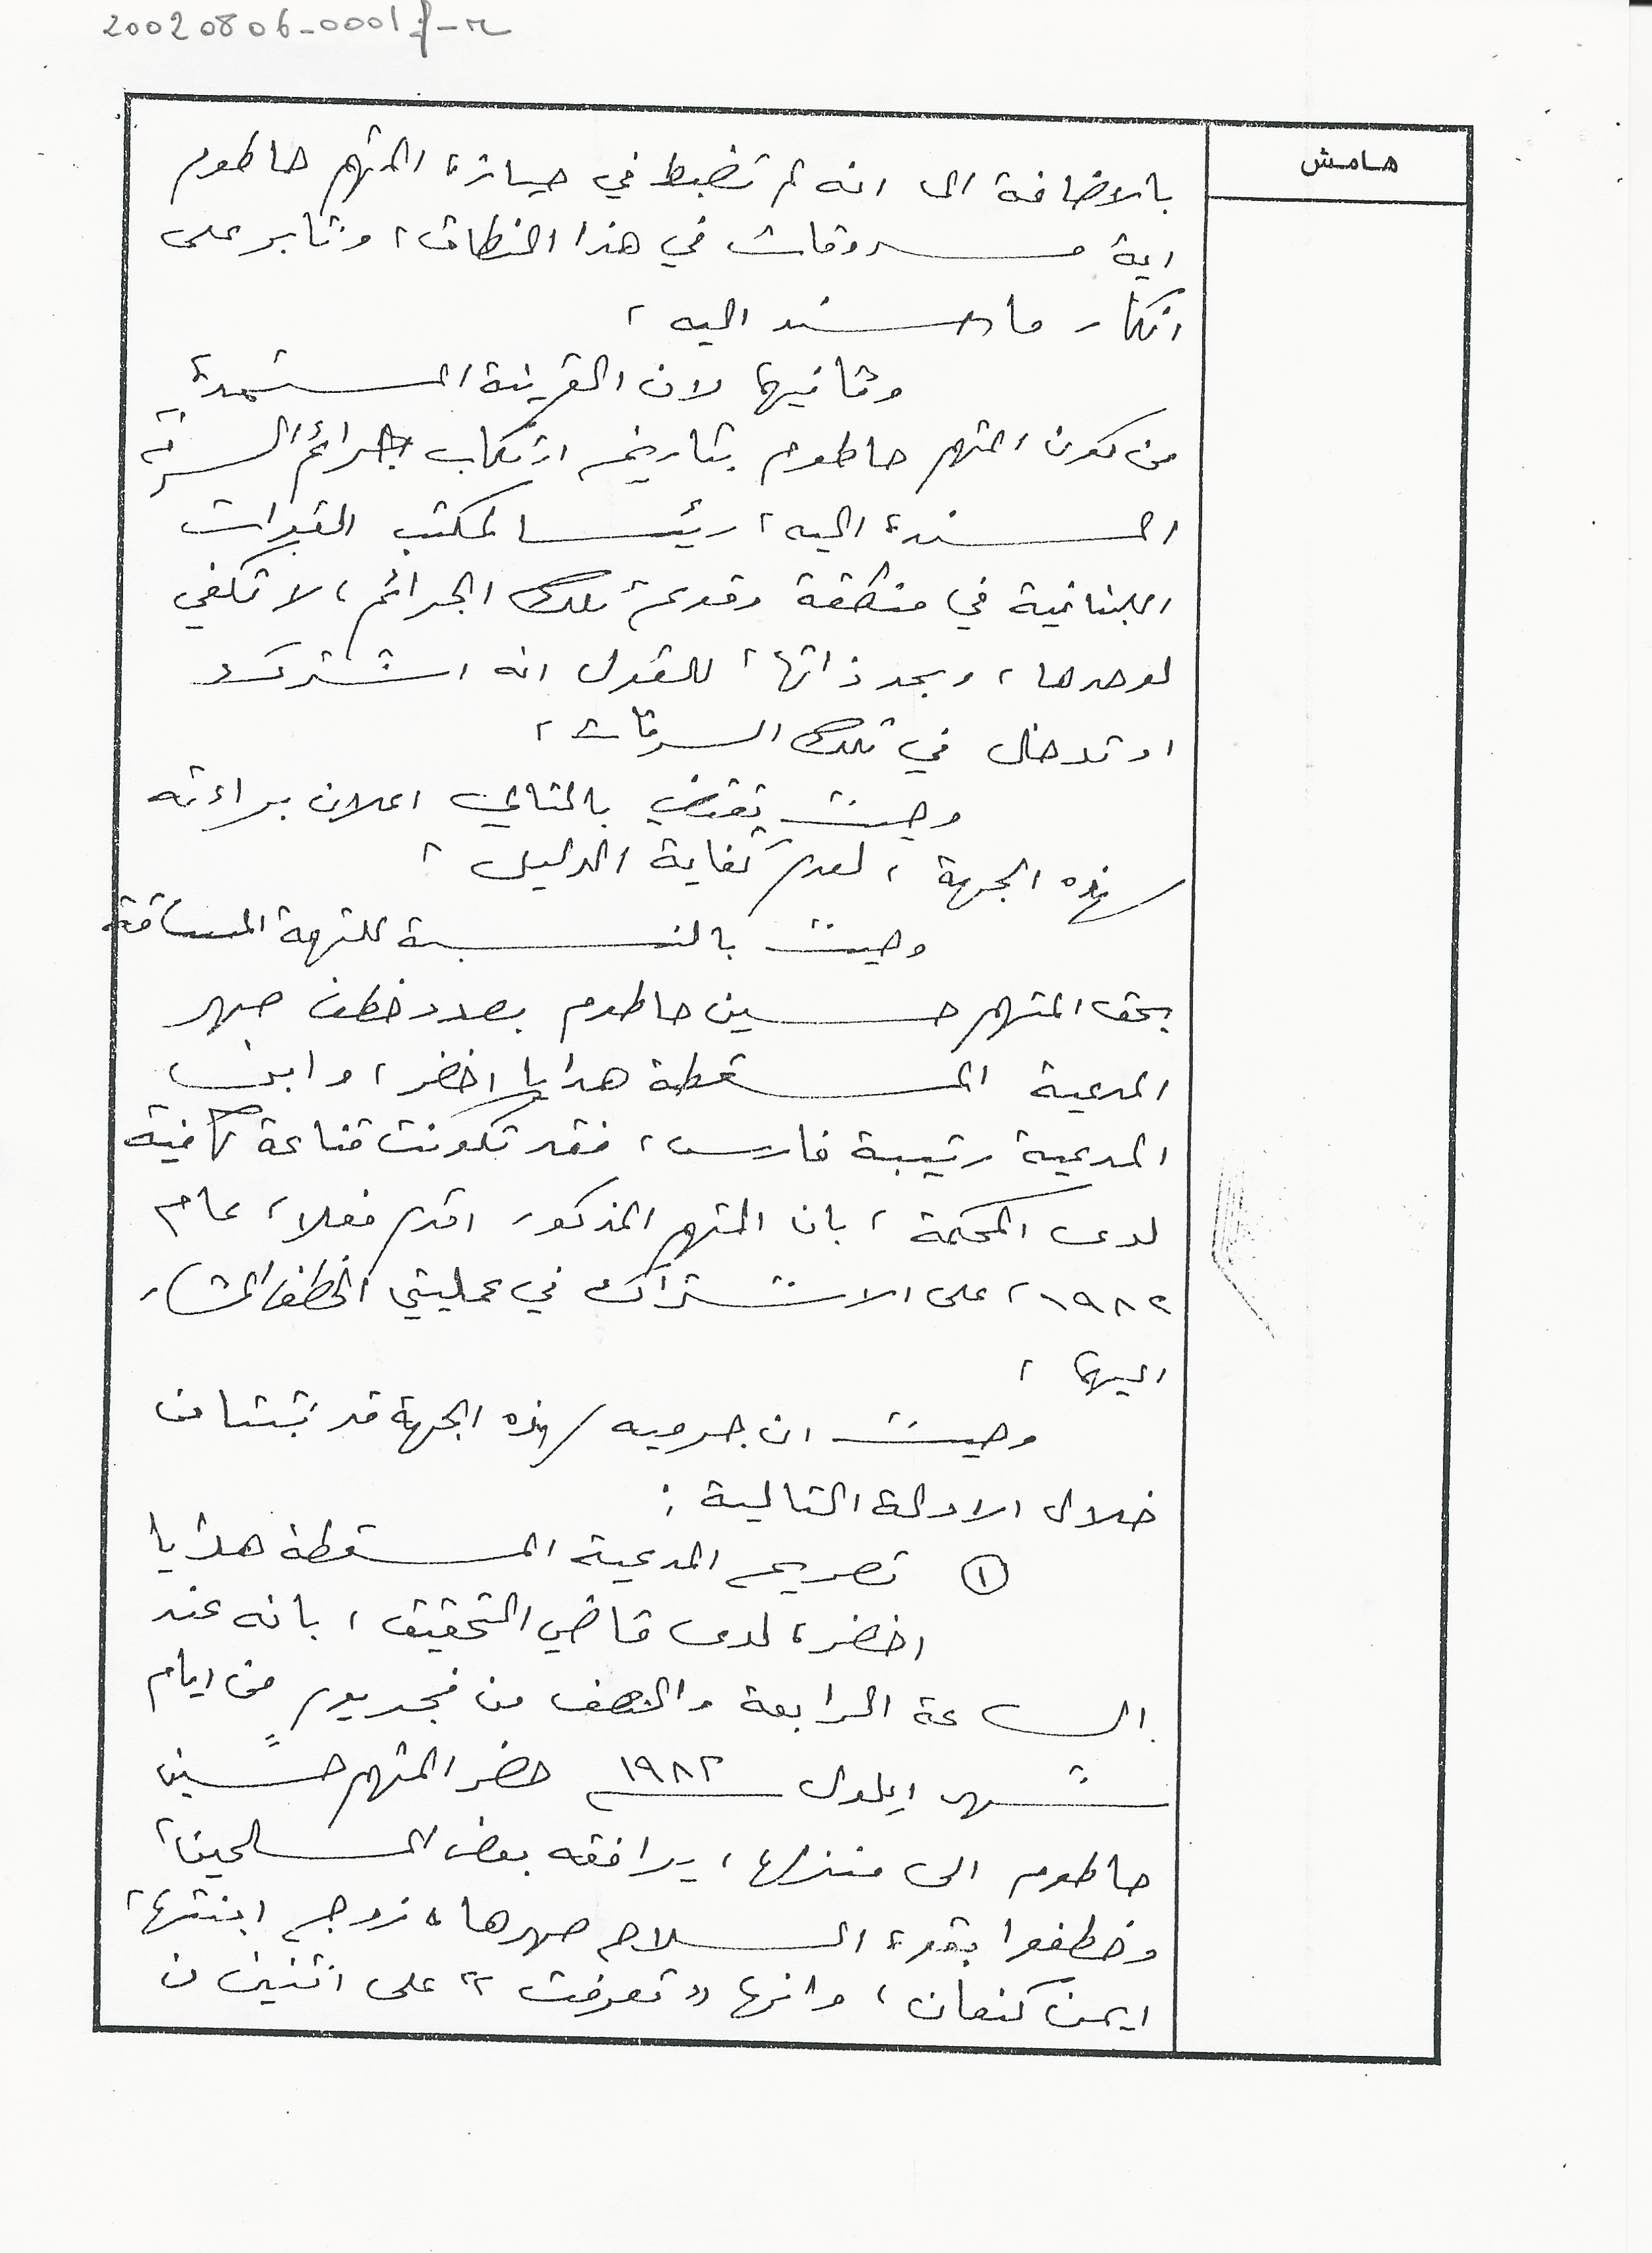 20020806-0001
هامش
بالاضافة الى انه لم تضبط في حيازة المتهم حاطوم
اية مسروقات في هذا النطاق، وثابر على
انكار ما اسند اليه،
وثانيهما لان القرينة المستمدة
من كون المتهم حاطوم بتاريخ ارتكاب جرائم السرقة
المسندة اليه، رئيسا لمكتب القوات
اللبنانية في منطقة وقوع تلك الجرائم، لا تكفي
لوحدها، وبحد ذاتها، للقول انه اشترك
او تدخل في تلك السرقات،
وحيث يقتضي بالتالي اعلان براءته
لهذه الجهة، لعدم كفاية الدليل،
وحيث بالنسبة للتهمة المساقة
بحق المتهم حسين حاطوم بصدد خطف صهر
المدعية المسقطة هدايا اخضر، وابن
المدعية رتيبة فارس، فقد تكونت قناعة كافية
لدى المحكمة، بان المتهم المذكور اقدم فعلا، عام
١٩٨٢، على الاشتراك في عمليتي الخطف المشار
اليهما،
وحيث ان جرميه لهذه الجهة قد ثبتا من
خلال الادلة التالية:
١ تصريح المدعية المسقطة هدايا
اخضر، لدى قاضي التحقيق، بانه عند
الساعة الرابعة والنصف من فجر يوم من ايام
شهر ايلول ١٩٨٢ حضر المتهم حسين
حاطوم الى منزلها، يرافقه بعض المسلحين،
وخطفوا بقوة السلاح صهرها، زوج ابنتها،
ايمن كنعان، وانها "تعرفت" على اثنين من